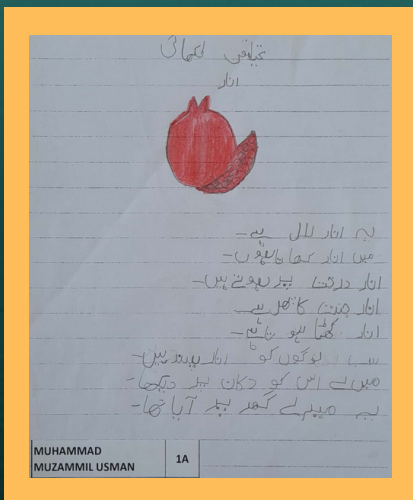 تخلیقی لکھائی
انار
یہ انار لال ہے-
میں انار کھاتا ہوں-
انار درخت پر ہوتے ہیں-
انار جنت کا پھل ہے-
انار کھٹا ہوتا ہے-
سب لوگوں کو انار پسند ہیں-
میں نے اس کو دکان پر دیکھا-
یہ میرے گھر پر آیا تھا-
MUHAMMAD
MUZAMMIL USMAN
1A